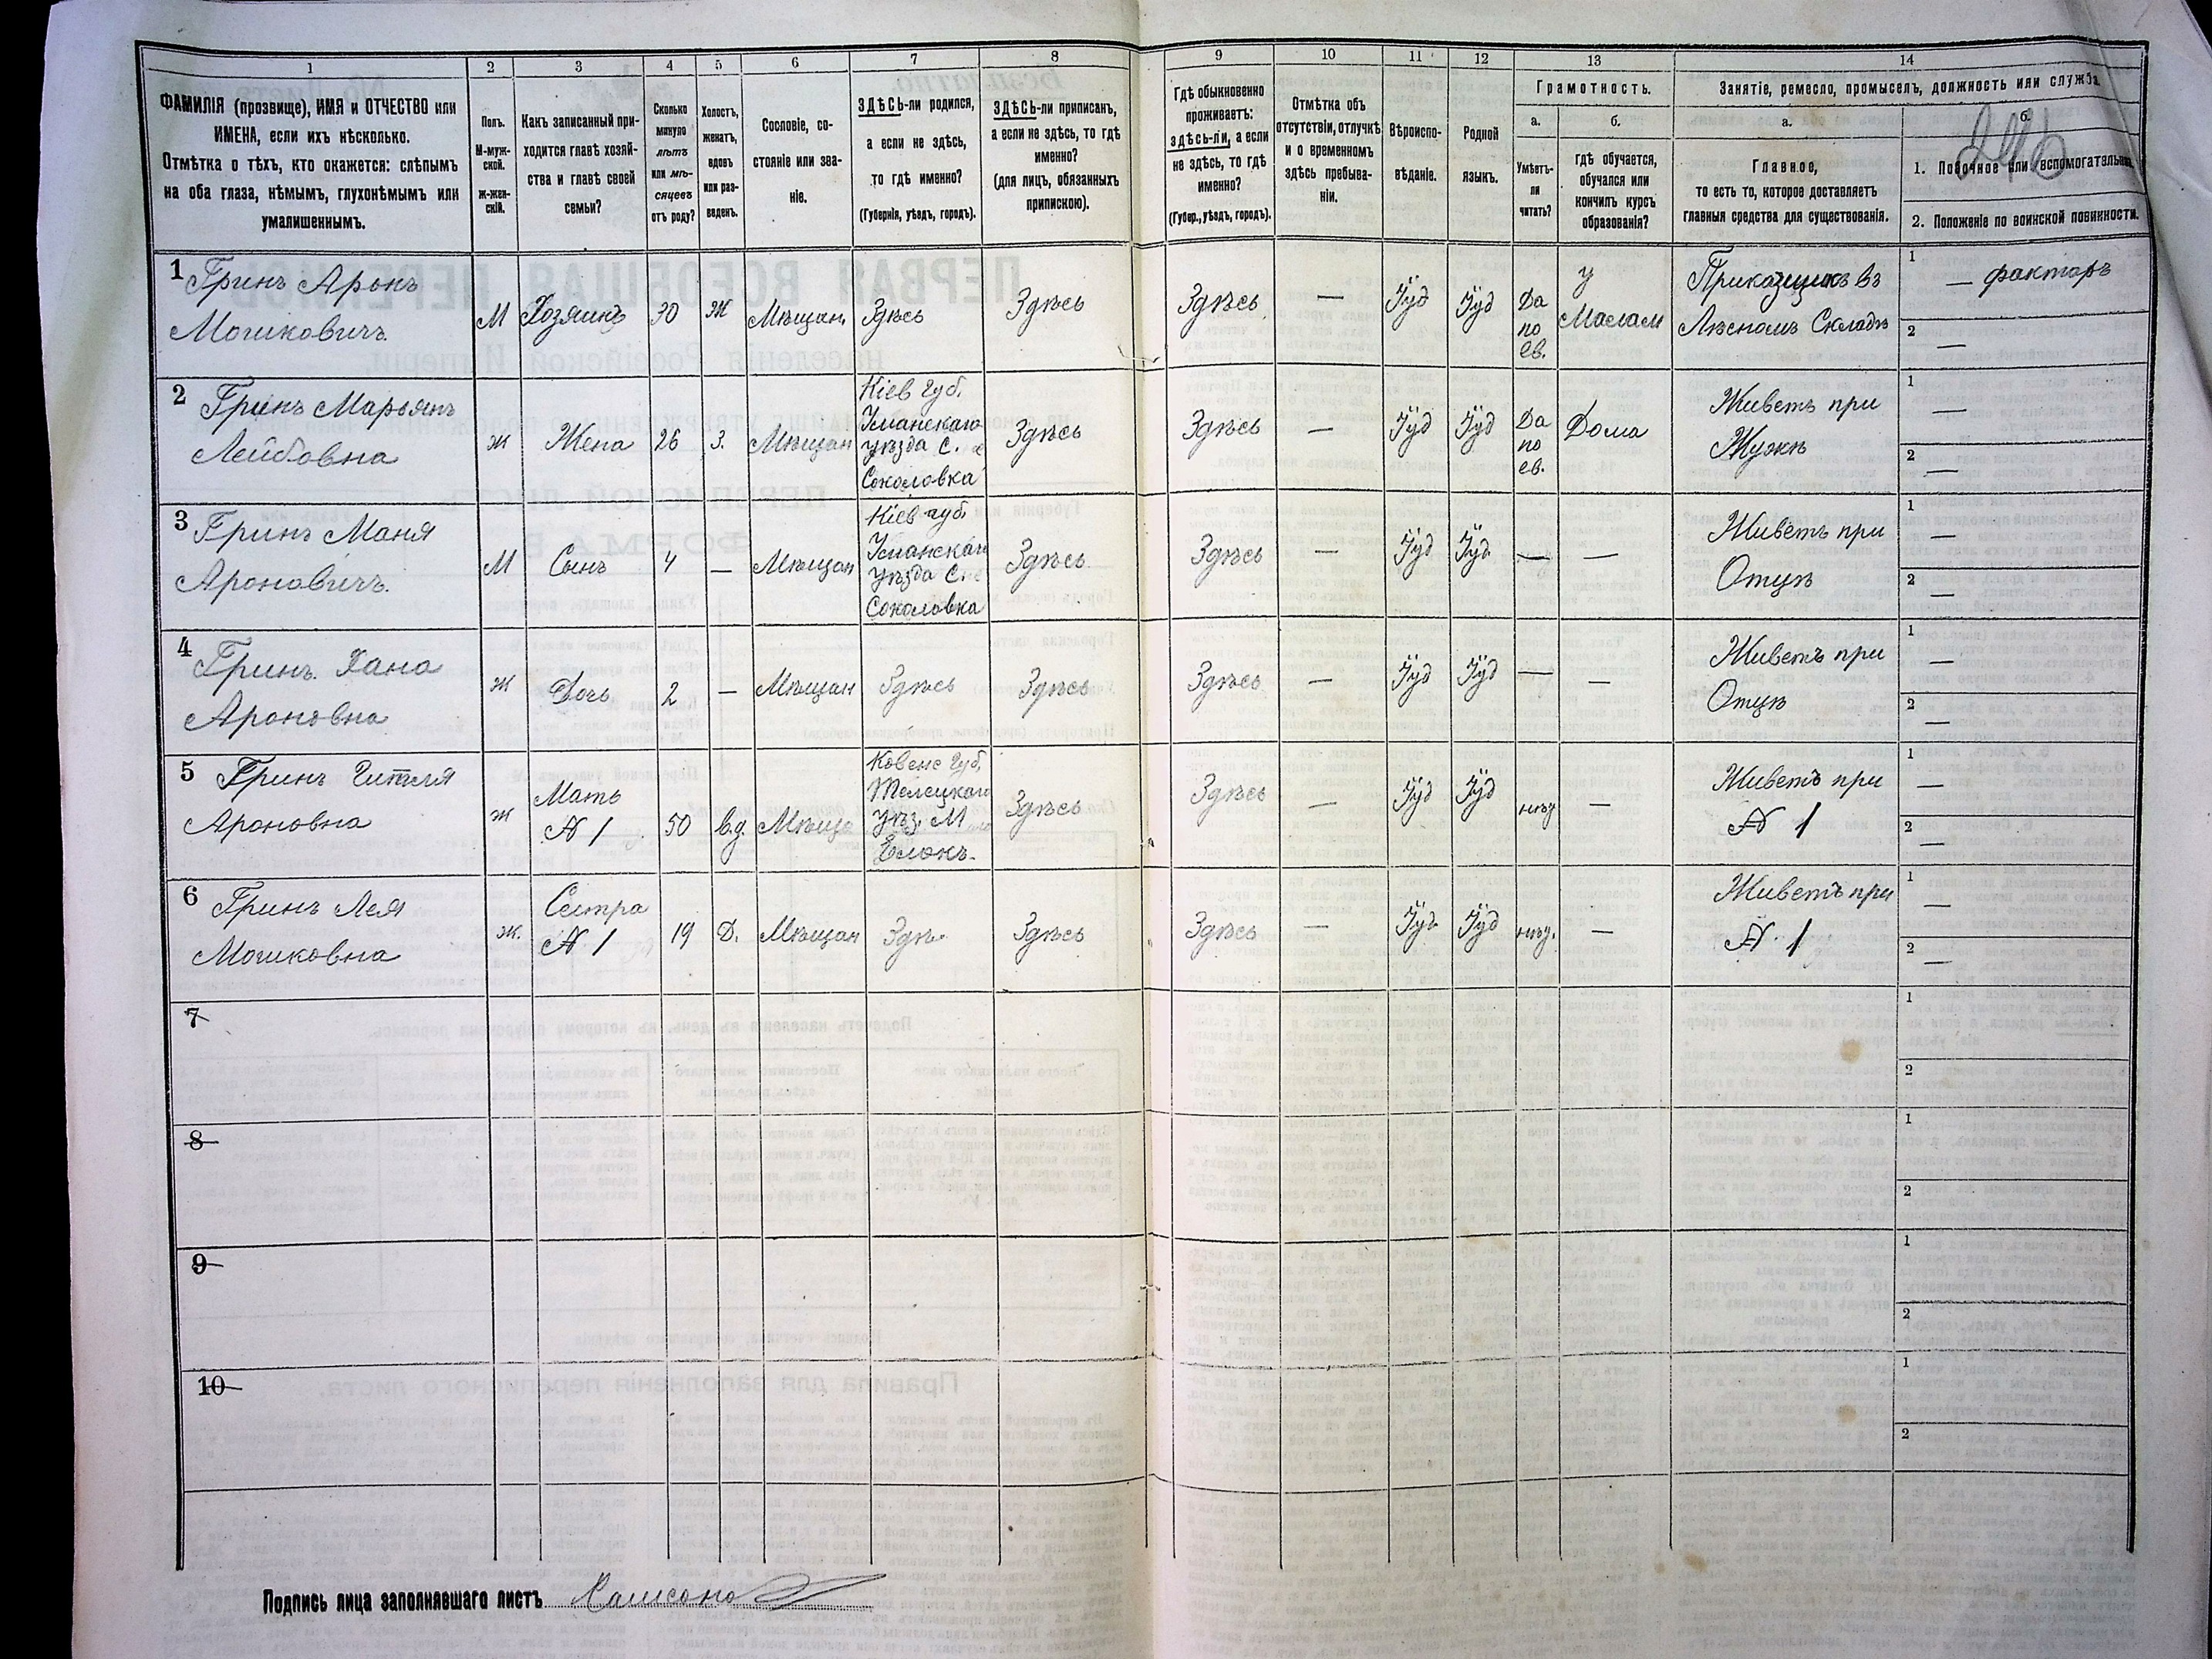 1 2 3 4 5 6 7 8 9 10 11 12 13 14
ФАМИЛІЯ (прозвище), ИМЯ и ОТЧЕСТВО или
ИМЕНА, если ихъ нѣсколько.
Отмѣтка о тѣхъ, кто окажется: слѣпымъ
на оба глаза, нѣмымъ, глухонѣмымъ или
умалишеннымъ.
Полъ.
М-муж-
ской.
ж-жен-
скій.
Какъ записанный при-
ходится главѣ хозяй-
ства и главѣ своей
семьи?
Сколько
минуло
лѣтъ
или мѣ-
сяцевъ
отъ роду?
Холостъ,
женатъ,
вдовъ
или раз-
веденъ.
Сословіе, со-
стояніе или зва-
ніе.
ЗДѢСЬ-ли родился,
а если не здѣсь,
то гдѣ именно?
(Губернія, уѣздъ, городъ).
ЗДѢСЬ-ли приписанъ,
а если не здѣсь, то гдѣ
именно?
(для лицъ, обязанныхъ
припискою).
Гдѣ обыкновенно
проживаетъ:
здѣсь-ли, а если
не здѣсь, то гдѣ
именно?
(Губер., уѣздъ, городъ).
Отмѣтка объ
отсутствіи, отлучкѣ
и о временномъ
здѣсь пребыва-
ніи.
Вѣроиспо-
вѣданіе.
Родной
языкъ.
Грамотность.
а.
Умѣетъ-
ли
читать?
б.
гдѣ обучается,
обучался или
кончилъ курсъ
образованія?
Занятіе, ремесло, промыселъ, должность или служба.
а.
Главное,
то есть то, которое доставляетъ
главныя средства для существованія.
б.
1. Побочное или вспомогательное.
2. Положеніе по воинской повинности.
1 Гринъ Аронъ
Мошковичъ.
М
Хозяинъ
30
Ж
Мѣщан.
Здѣсь
Здѣсь
Здѣсь
—
Іуд
Іуд
Да
по
ев.
У
Приказщикъ въ
Лѣсномъ Складѣ
1 — факторъ
2 —
2 Гринъ Марьянъ
Лейбовна
Ж
Жена
26
З.
Мѣщан
Кіев губ.
Уманскаго
уѣзда С.
Соколовка
Здѣсь
Здѣсь
—
Іуд
Іуд
Да
по
ев.
Дома
Живетъ при
Мужѣ
1 —
2 —
3 Гринъ Маня
Ароновичъ.
М
Сынъ
4
—
Мѣщан
Кіев губ.
Уманскаго
уѣзда С
Соколовка
Здѣсь
Здѣсь
—
Іуд
Іуд
—
—
Живетъ при
Отцѣ
1 —
2 —
4 Гринъ. Хана
Ароновна
Ж
Дочь
2
—
Мѣщан
Здѣсь
Здѣсь
Здѣсь
—
Іуд
Іуд
—
—
Живетъ при
Отцѣ
1 —
2 —
5 Гринъ Гитля
Ароновна
Ж
Мать
№ 1
50
Вд.
Мѣща
Ковенс Губ.
Телецкаго
уѣз. М
Здѣсь
Здѣсь
—
Іуд
Іуд
—
Живетъ при
№ 1
1 —
2 —
6 Гринъ Лея
Мошковна
Ж.
Сестра
№ 1
19
Д.
Мѣщан
Здѣ
Здѣсь
Здѣсь
—
Іуд
Іуд
—
Живетъ при
№ 1
1 —
2 —
7
1
2
8
1
2
9
1
2
10
1
2
Подпись лица заполнявшаго листъ